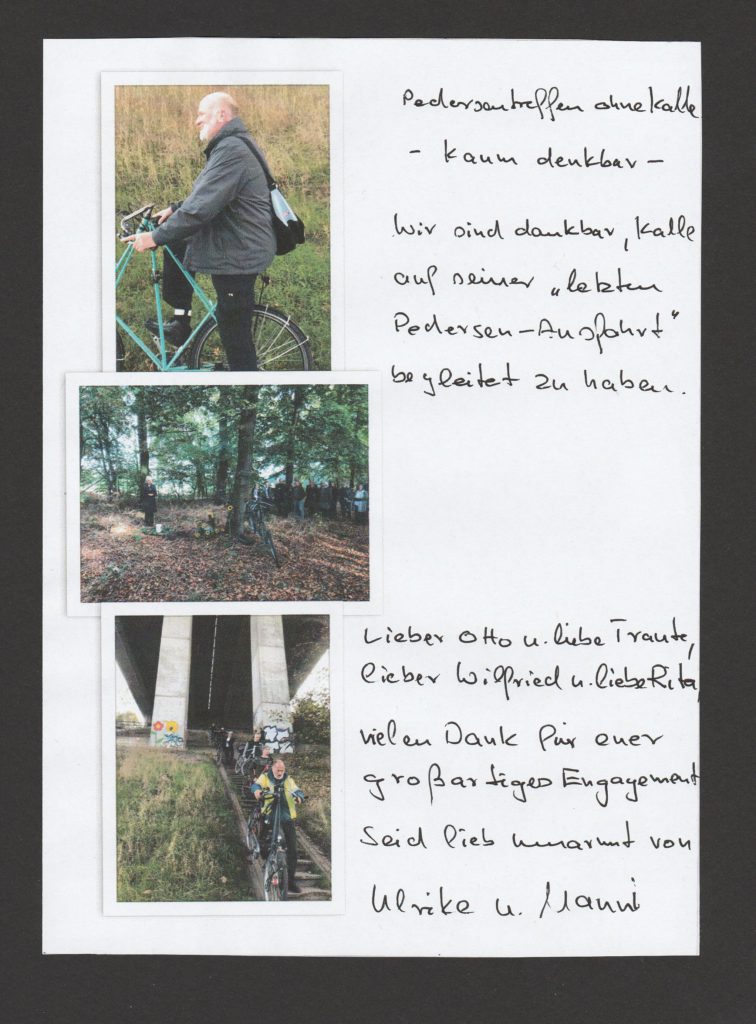 Pedersentreffen ohne Kalle
- kaum denkbar -
Wir sind dankbar, Kalle
auf seiner „letzten
Pedersen-Ausfahrt"
begleitet zu haben.
Lieber Otto u. liebe Traute,
lieber Wilfried u. liebe Rita,
vielen Dank für euer
großartiges Engagement
Seid lieb umarmt von
Ulrike u. Manni